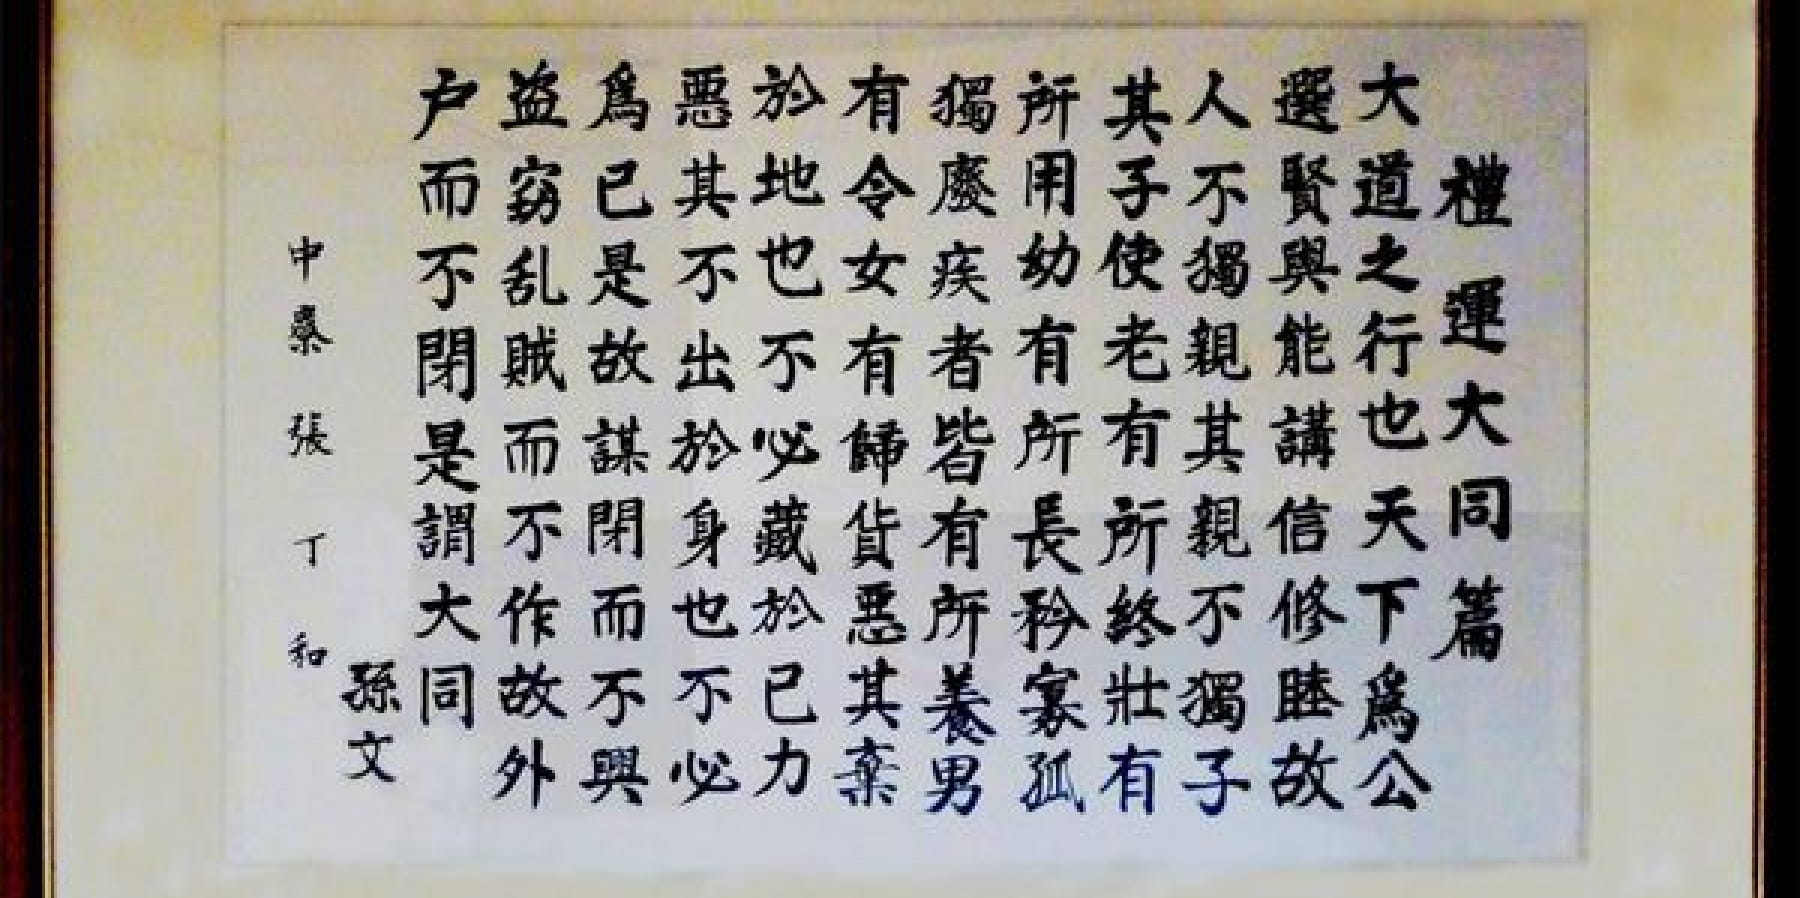 禮運大同篇
大道之行也天下爲公
選賢與能講信修睦故
人不獨親其親不獨子
其子使老有所終壯有
所用幼有所長矜寡孤
獨廢疾者皆有所養男
有令女有歸貨惡其棄
於地也不必藏於己力
惡其不出於身也不必
爲己是故謀閉而不興
盗竊乱賊而不作故外
户而不閉是謂大同
孫文
中張丁和